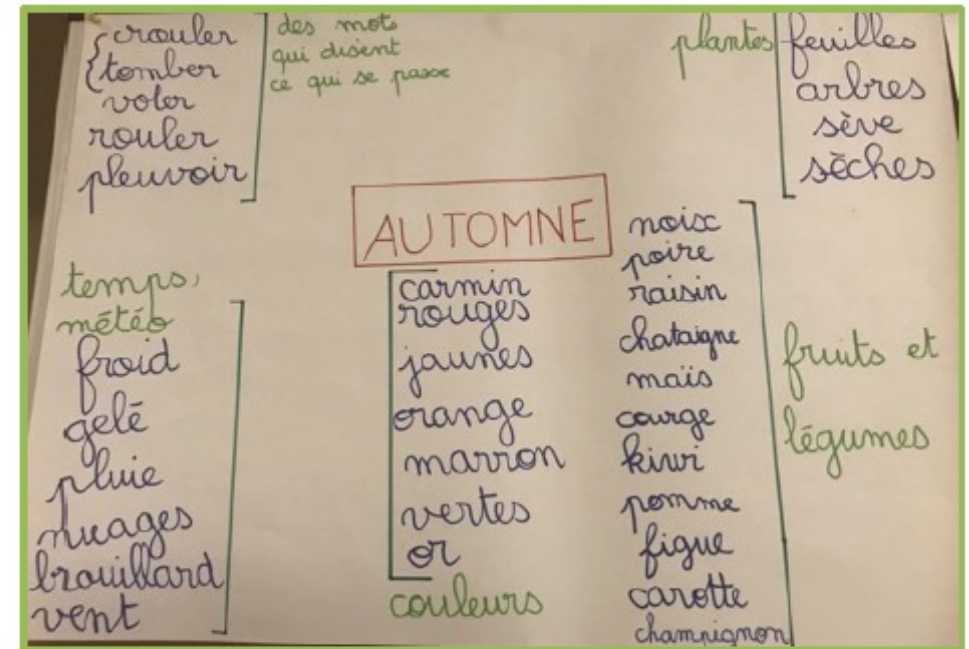 crouler
tomber
voler
rouler
pleuvoir
des mots
qui disent
ce qui se passe
plantes
feuilles
arbres
sève
sèches
AUTOMNE
temps,
météo
froid
gelé
pluie
nuages
brouillard
vent
carmin
rouges
jaunes
orange
marron
vertes
or
couleurs
noix
poire
raisin
chataigne
maïs
courge
kiwi
pomme
figue
carotte
champignon
fruits et
légumes